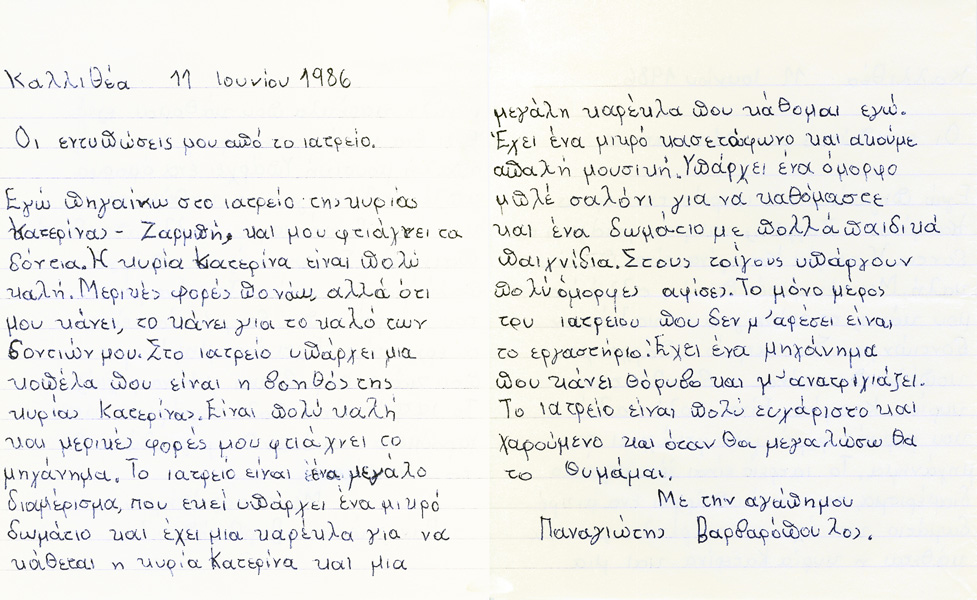 Καλλιθέα 11 Ιουνίου 1986
Οι εντυπώσεις μου από το ιατρείο.
Εγώ πηγαίνω στο ιατρείο της κυρίας
Κατερίνας - Ζαρμπή, και μου φτιάχνει τα
δόντια. Η κυρία Κατερίνα είναι πολύ
καλή. Μερικές φορές πονάω, αλλά ότι
μου κάνει, το κάνει για το καλό των
δοντιών μου. Στο ιατρείο υπάρχει μια
κοπέλα που είναι η βοηθός της
κυρίας Κατερίνας. Είναι πολύ καλή
και μερικές φορές μου φτιάχνει το
μηχάνημα. Το ιατρείο είναι ένα μεγάλο
διαμέρισμα, που εκεί υπάρχει ένα μικρό
δωμάτιο και έχει μια καρέκλα για να
κάθεται η κυρία Κατερίνα και μια
μεγάλη καρέκλα που κάθομαι εγώ.
Έχει ένα μικρό κασετόφωνο και ακούμε
απαλή μουσική. Υπάρχει ένα όμορφο
μπλέ σαλόνι για να καθόμαστε
και ένα δωμάτιο με πολλά παιδικά
παιχνίδια. Στους τοίχους υπάρχουν
πολύ όμορφες αφίσες. Το μόνο μέρος
του ιατρείου που δεν μ'αρέσει είναι
το εργαστήριο! Έχει ένα μηχάνημα
που κάνει θόρυβο και μ'ανατριχιάζει.
Το ιατρείο είναι πολύ ευχάριστο και
χαρούμενο και όταν θα μεγαλώσω θα
το θυμάμαι.
Με την αγάπη μου
Παναγιώτης Βαρβαρόπουλος.